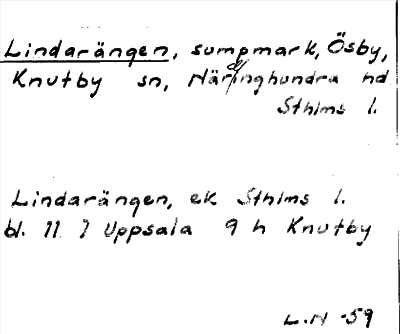 Lindarängen, sumpmark, Ösby,
Knutby sn, Närdinghundra hd
Sthlms l.
Lindarängen, ek Sthlms l.
bl. 11 I Uppsala 9 h Knutby
L.N -59